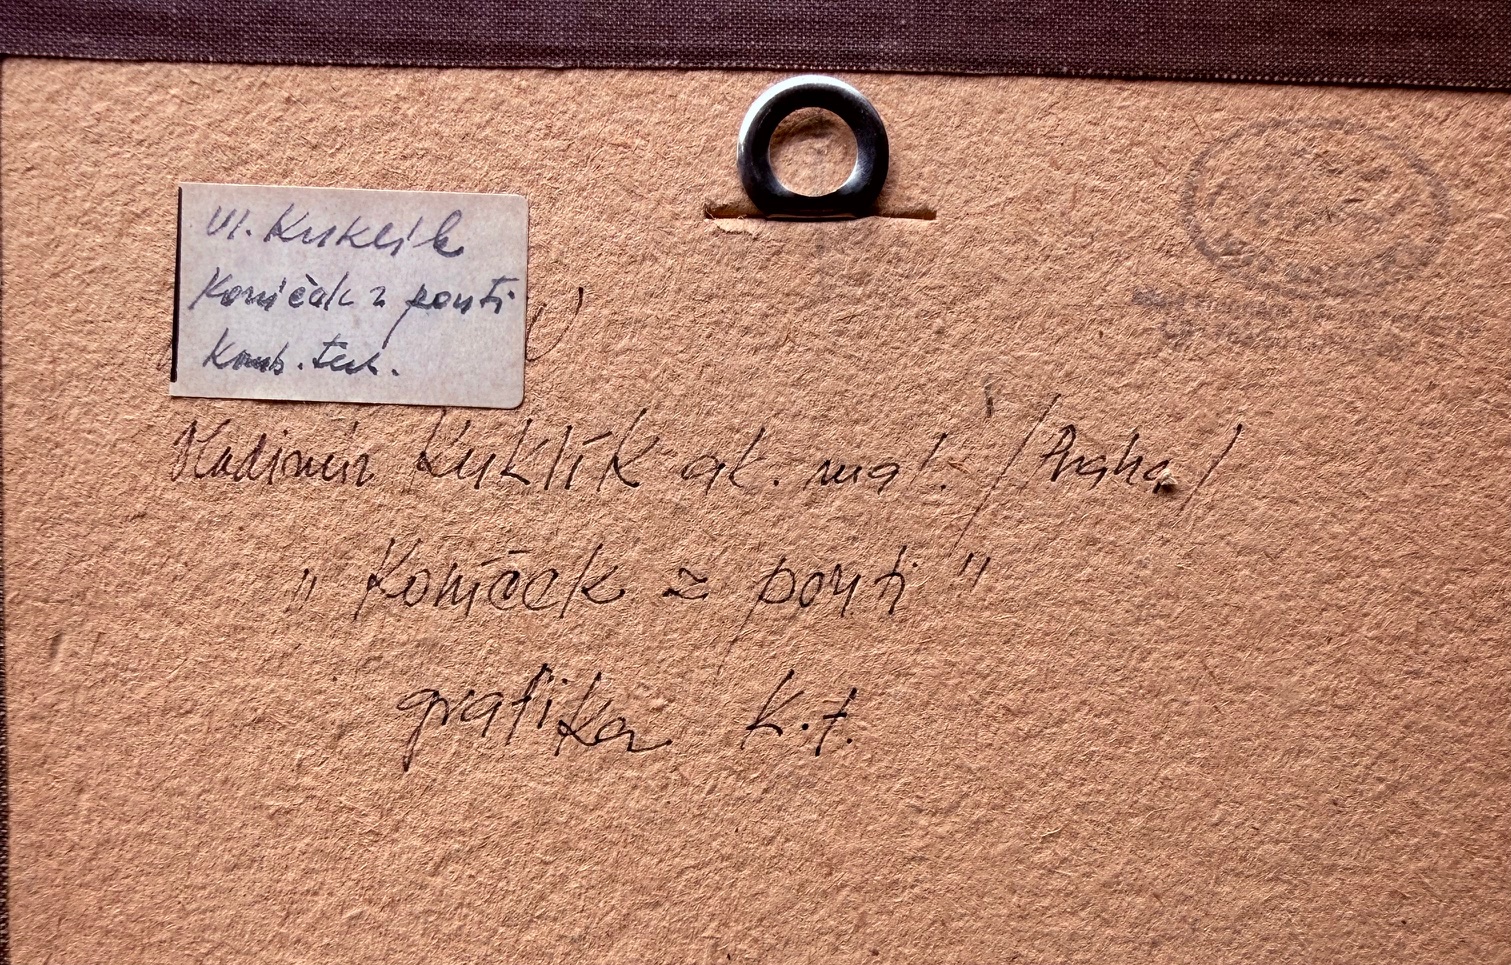 Vl. Kuklík
Koníček z pouti
Komb. tech.
Vladimír Kuklík ak. mal. /Praha/
„Koníček z pouti"
grafika K.t.